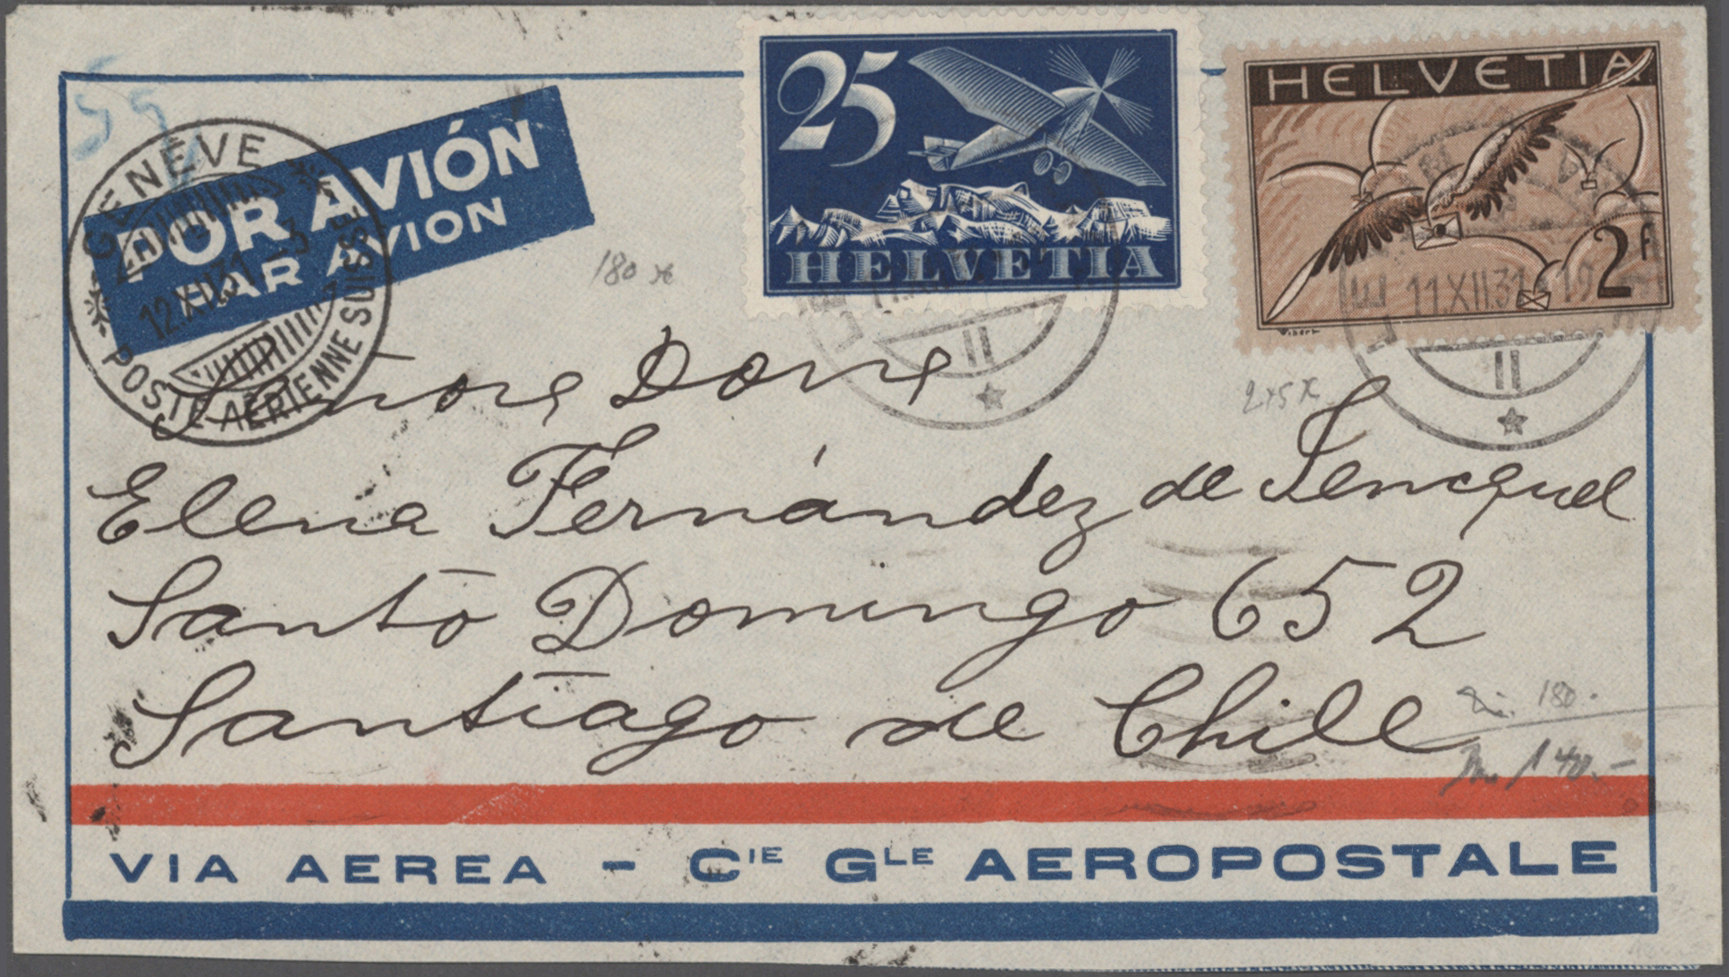 55
25
HELVETIA
HELVETIA
2 F
GENÈVE
12.XII.31-3
POSTE AÉRIENNE SUISSE
POR AVIÓN
PAR AVION
11.XII.31-19
II
II
180 x
275 x
Señora Doña
Elena Fernández de
Santo Domingo 652
Santiago de Chile
180.-
140.-
VIA AEREA - CIE GLE AEROPOSTALE